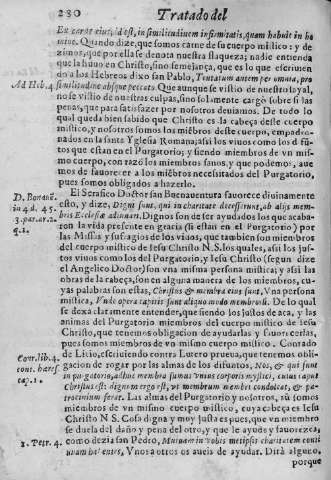 280 Tratado del
Ex carne eius, id est, in similitudinem infirmitatis, quam habuit in ho
mine. Quando dize, que somos carne de su cuerpo mistico: y de
zimos, que por ella se denota nuestra flaqueza; nadie entienda
que la huuo en Christo, sino semejança, que es lo que escriuien
do a los Hebreos dixo san Pablo, Tentatum autem per omnia, pro
Ad Heb. 4. similitudine absque peccato. Que aunque se vistio de nuestro sayal,
no se vistio de nuestras culpas, sino solamente cargò sobre si las
penas, que para satisfazer por nosotros deuiamos. De todo lo
qual queda bien sabido que Christo es la cabeça deste cuerpo
mistico, y nosotros somos los miẽbros deste cuerpo, empadro-
nados en la santa Yglesia Romana; assi los viuos como los difun-
tos que estan en el Purgatorio; y siendo miembros de vn mis-
mo cuerpo, con razõ los miembros sanos, y que podemos, aue
mos de fauorecer a los miẽbros necessitados del Purgatorio,
pues somos obligados a hazerlo.
El Serafico Doctor san Buenauentura fauorece diuinamente
D. Bonauē. esto, y dize, Digni sunt, qui in charitate decesserunt, ab alijs mem-
in 4 d. 45. bris Ecclesiæ adiuuari. Dignos son de ser ayudados los que acaba-
3. par. ar. 2. ron la vida presente en gracia (si estan en el Purgatorio) por
q. 1. las Missas y sufragios de los viuos, que tambien son miembros
del cuerpo mistico de Iesu Christo N. S. los quales, assi los jus-
tos viuos como los del Purgatorio, y Iesu Christo (segun dize
el Angelico Doctor) son vna misma persona mistica; y assi las
obras de la cabeça, son en alguna manera de los miembros, cu-
yas palabras son estas, Christus & membra eius sunt, Vna persona
mistica, Vnde opera capitis sunt aliquo modo membrorũ. De lo qual
se dexa claramente entender, que siendo los justos de acá, y las
animas del Purgatorio miembros del cuerpo mistico de Iesu
Christo, que tenemos obligacion de ayudarlas y fauorecerlas,
pues somos miembros de vn mismo cuerpo mistico. Conrado
Cont. lib. 4. de Licio, escriuiendo contra Lutero prueua, que tenemos obli-
cont. haref. gacion de rogar por las almas de los difuntos, Nos, & qui sunt
cap. 1. in purgatorio, adhuc membra sumus vnius corporis mystici, cuius caput
Christus est: dignum ergo est, vt membrum membri condoleat, & pa-
trocinium ferat. Las almas del Purgatorio y nosotros, somos
miembros de vn mismo cuerpo mistico, cuya cabeça es Iesu
Christo N. S. Cosa digna y muy justa es pues, que vn miembro
se duela del daño y pena del otro, y que le ayude y fauorezca;
1. Petr. 4. como dezia san Pedro, Mutuam in vobis metipsis charitatem conti
nuam habentes, Vnos a otros os aueis de ayudar. Dirà alguno,
porque